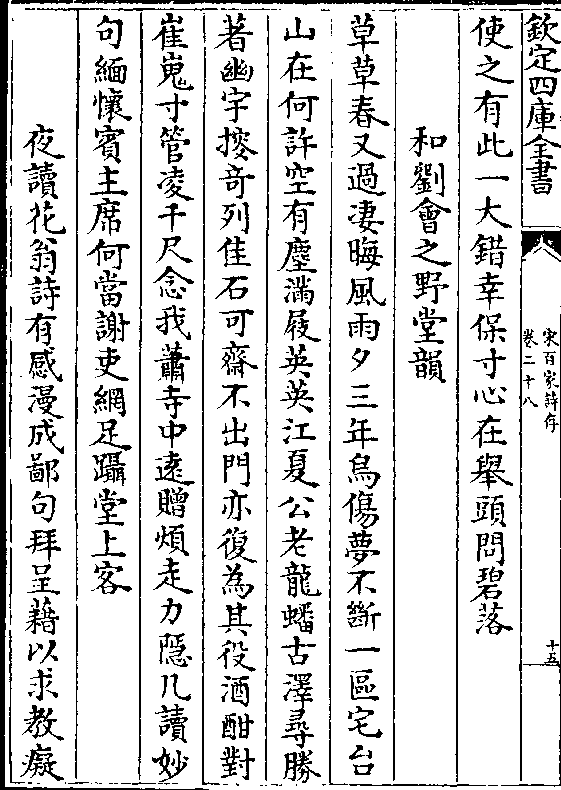 欽定四庫全書
宋百家詩存
卷二十八
十五
使之有此一大錯幸保寸心在舉頭問碧落
和劉會之野堂韻
草草春又過凄晦風雨夕三年烏傷夢不斷一區宅台
山在何許空有塵滿屐英英江夏公老龍蟠古澤尋勝
著幽宇搜奇列佳石可齋不出門亦復為其役酒酣對
崔嵬寸管凌千尺念我蕭寺中遠贈煩走力隱几讀妙
句緬懷賓主席何當謝吏網足躡堂上客
夜讀花翁詩有感漫成鄙句拜呈藉以求教癡